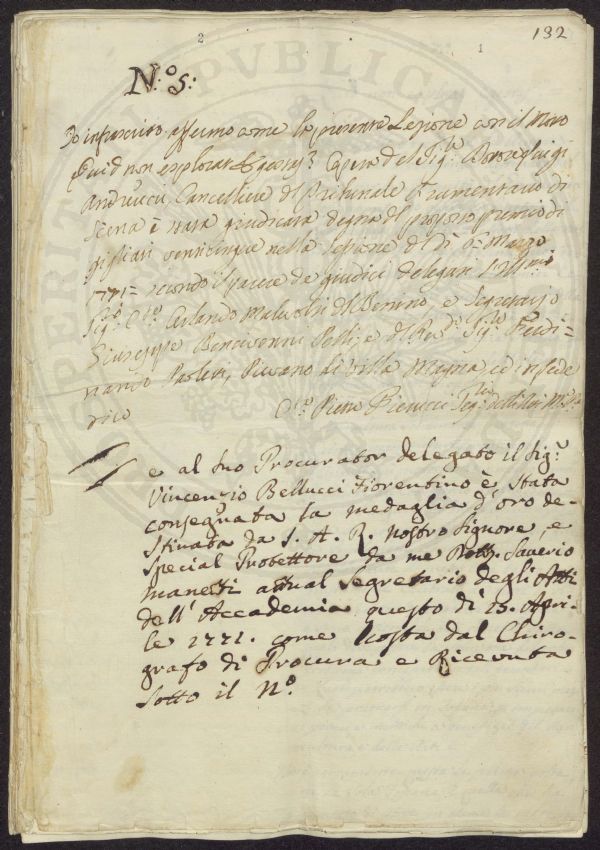 132
2
1
N.º 5:
Io infrascritto affermo come la presente Lezione con il Motto
Quid non explorat Egestas? Opera del Sig.
Andreucci Cancelliere del Tribunale Frumentario di
Siena è stata giudicata degna del proposto premio di
gigliati venticinque nella Sezione del dì 6 Marzo
1771 = secondo il parere de giudici delegati
Sig. Orlando Malavolti del Benino, e Segretario
Giuseppe Bencivenni Pelli, e del Rev. Sig. Ferdi=
nando Paoletti, Piovano di Villa Magna, ed in fede
dico
e al suo Procurator delegato il Sig.r
Vincenzio Bellucci Fiorentino è stata
consegnata la medaglia d'oro de-
stinata da S. A. R. nostro Signore, e
special Protettore da me Dott. Saverio
Manetti attual Segretario degli Atti
dell'Accademia questo dì 15. Apri-
le 1771. come costa dal Chiro-
grafo di Procura e Ricevuta
sotto il Nº